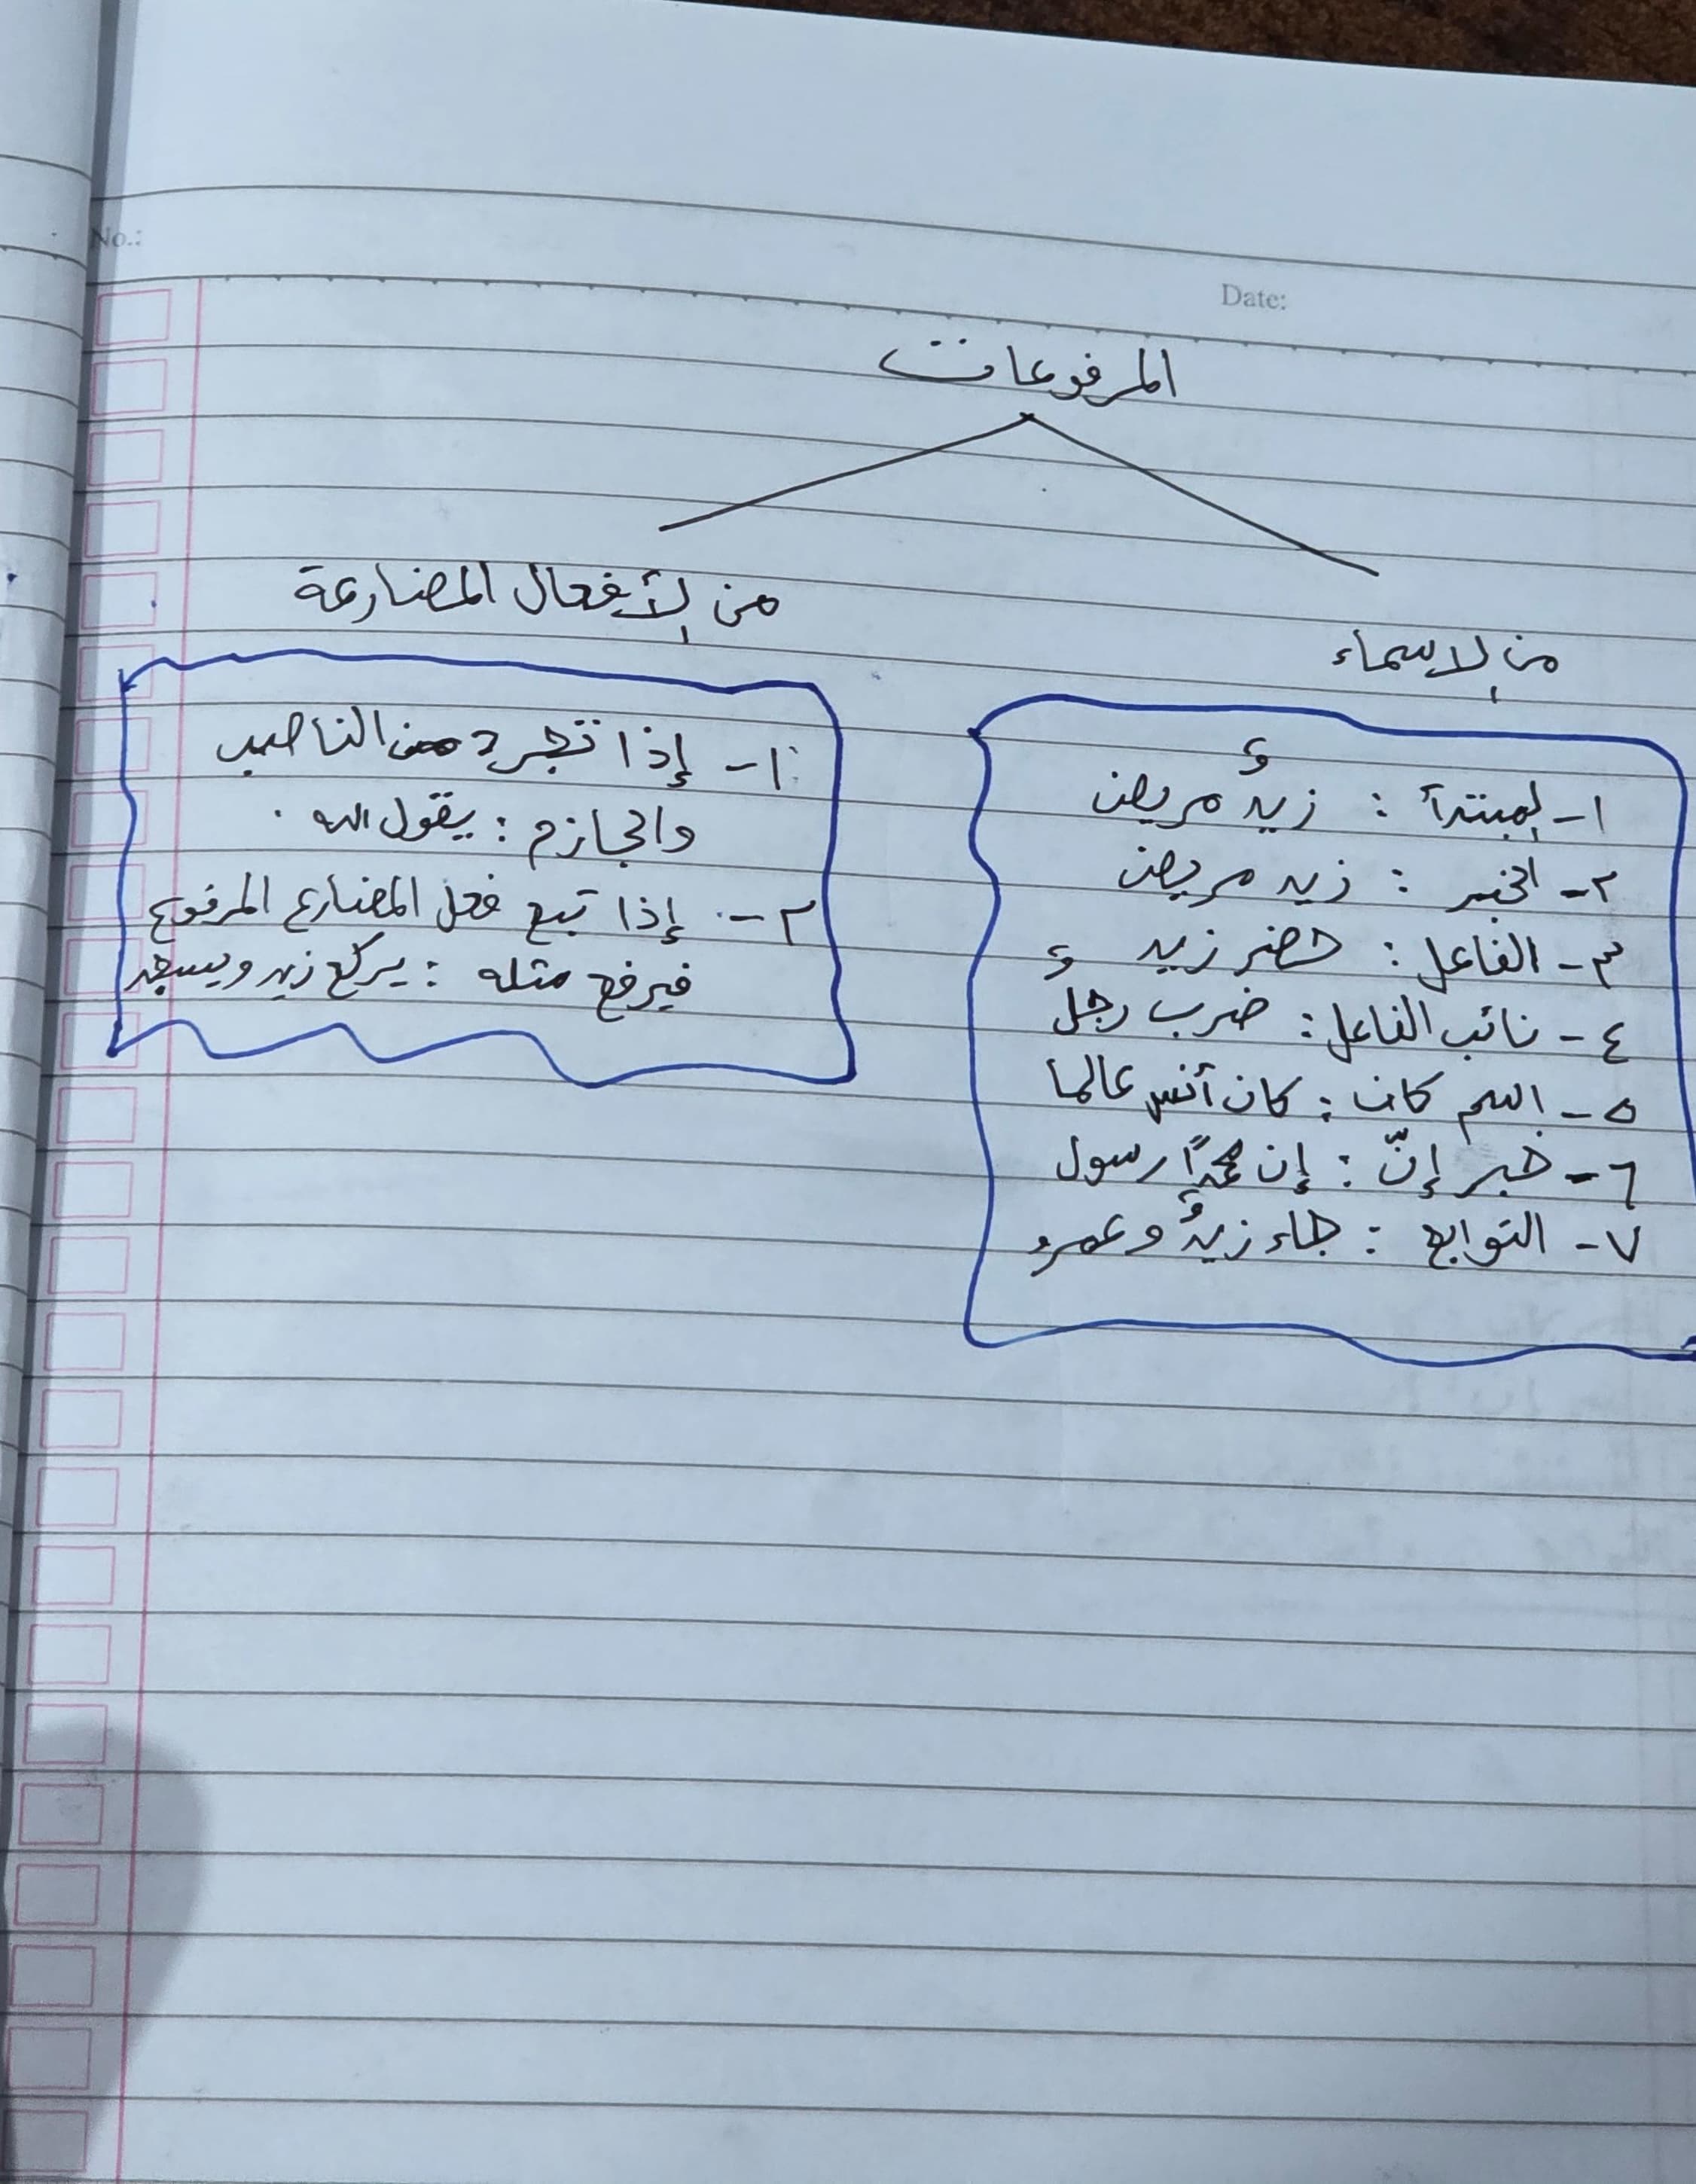 No.:
Date:
المرفوعات
من الاسماء
١- المبتدأ : زيدٌ مريض
٢- الخبر : زيد مريض
٣- الفاعل : حضر زيد
٤- نائب الفاعل : ضرب رجلٌ
٥- اسم كان : كان أنس عالما
٦- خبر إنّ : إن محمداً رسول
٧- التوابع : جاء زيدٌ وعمرو
من الأفعال المضارعة
١- إذا تجرد من الناصب
والجازم : يقول الله .
٢- إذا تبع فعل المضارع المرفوع
فيرفع مثله : يركع زيد ويسجد